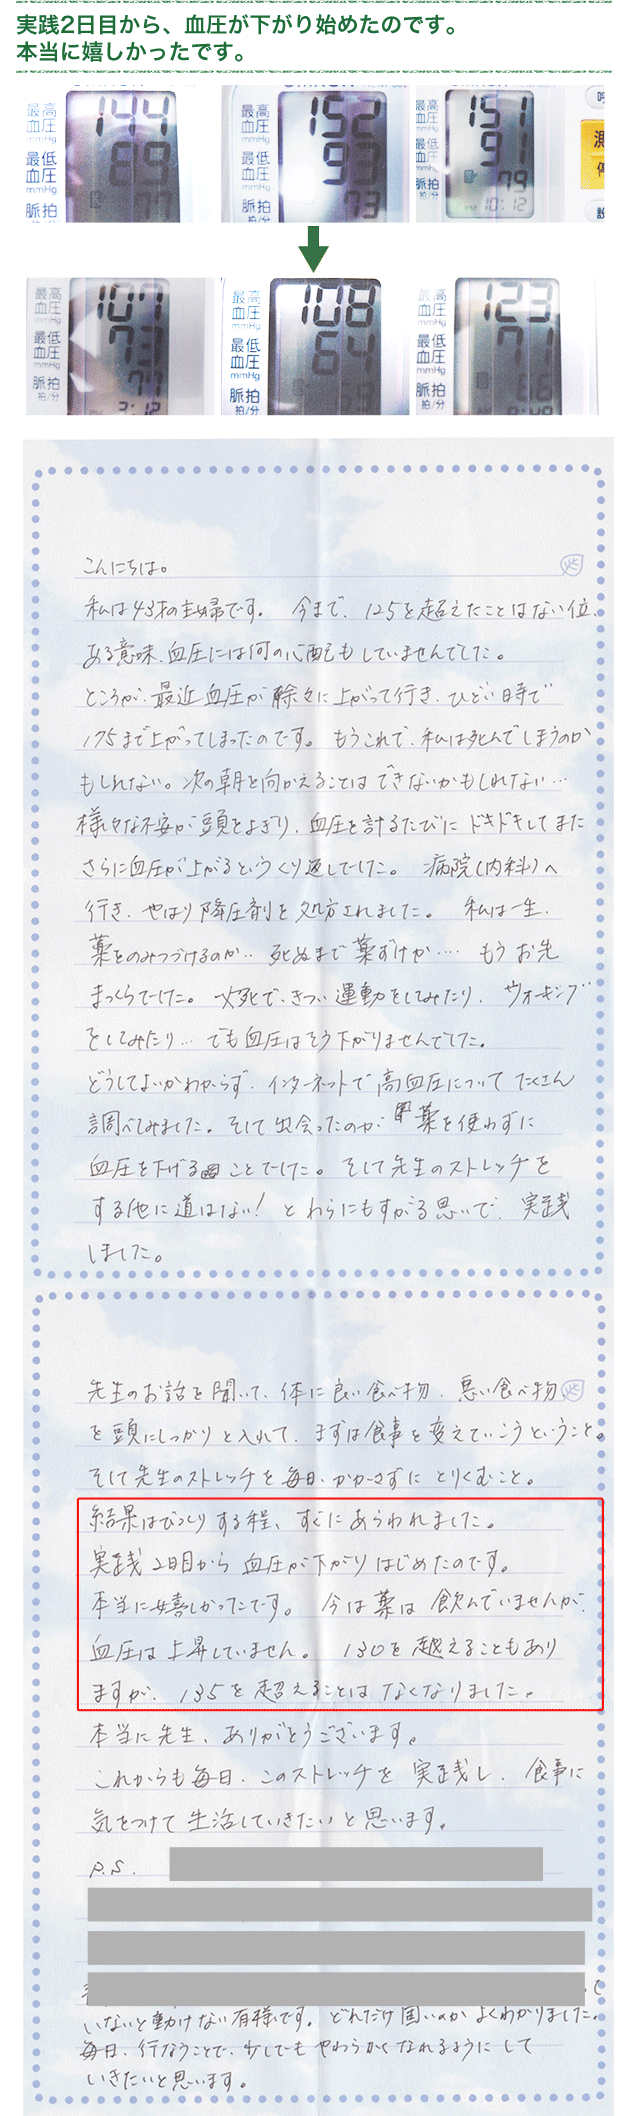 実践2日目から、血圧が下がり始めたのです。
本当に嬉しかったです。
最高血圧 mmHg 144
最低血圧 mmHg 89
脈拍 77
最高血圧 mmHg 152
最低血圧 mmHg 93
脈拍 73
最高血圧 mmHg 151
最低血圧 mmHg 91
脈拍 拍/分 79
PM 10:12
最高血圧 mmHg 107
最低血圧 mmHg 73
脈拍 拍/分 77
3:12
最高血圧 mmHg 108
最低血圧 mmHg 64
脈拍 拍/分
最高血圧 mmHg 123
最低血圧 mmHg 71
脈拍 拍/分
こんにちは。
私は43才の主婦です。 今まで、125を超えたことはない位、
ある意味、血圧には何の心配もしていませんでした。
ところが、最近血圧が除々に上がって行き、ひどい時で
175まで上がってしまったのです。 もうこれで、私は死んでしまうのか
もしれない。次の朝を向かえることはできないかもしれない…
様々な不安が頭をよぎり、血圧を計るたびにドキドキしてまた
さらに血圧が上がるというくり返しでした。 病院(内科)へ
行き、やはり降圧剤を処方されました。 私は一生、
薬をのみつづけるのか‥ 死ぬまで薬ずけか‥‥ もうお先
まっくらでした。必死で、きつい運動をしてみたり、ウォーキング
をしてみたり… でも血圧はそう下がりませんでした。
どうしてよいかわからず、インターネットで高血圧についてたくさん
調べてみました。そして出会ったのが 薬を使わずに
血圧を下げる ことでした。そして先生のストレッチを
する他に道はない! とわらにもすがる思いで、実践
しました。
先生のお話を聞いて、体に良い食べ物、悪い食べ物、
を頭にしっかりと入れて、まずは食事を変えていこうということ。
そして先生のストレッチを毎日、かかさずにとりくむこと。
結果はびっくりする程、すぐにあらわれました。
実践2日目から血圧が下がりはじめたのです。
本当に嬉しかったです。 今は薬は飲んでいませんが、
血圧は上昇していません。 130を越えることもあり
ますが、135を超えることはなくなりました。
本当に先生、ありがとうございます。
これからも毎日、このストレッチを実践し、食事に
気をつけて生活していきたいと思います。
P.S.
いないと動けない有様です。どれだけ固いのかよくわかりました。
毎日、行なうことで、少しでもやわらかくなれるようにして
いきたいと思います。